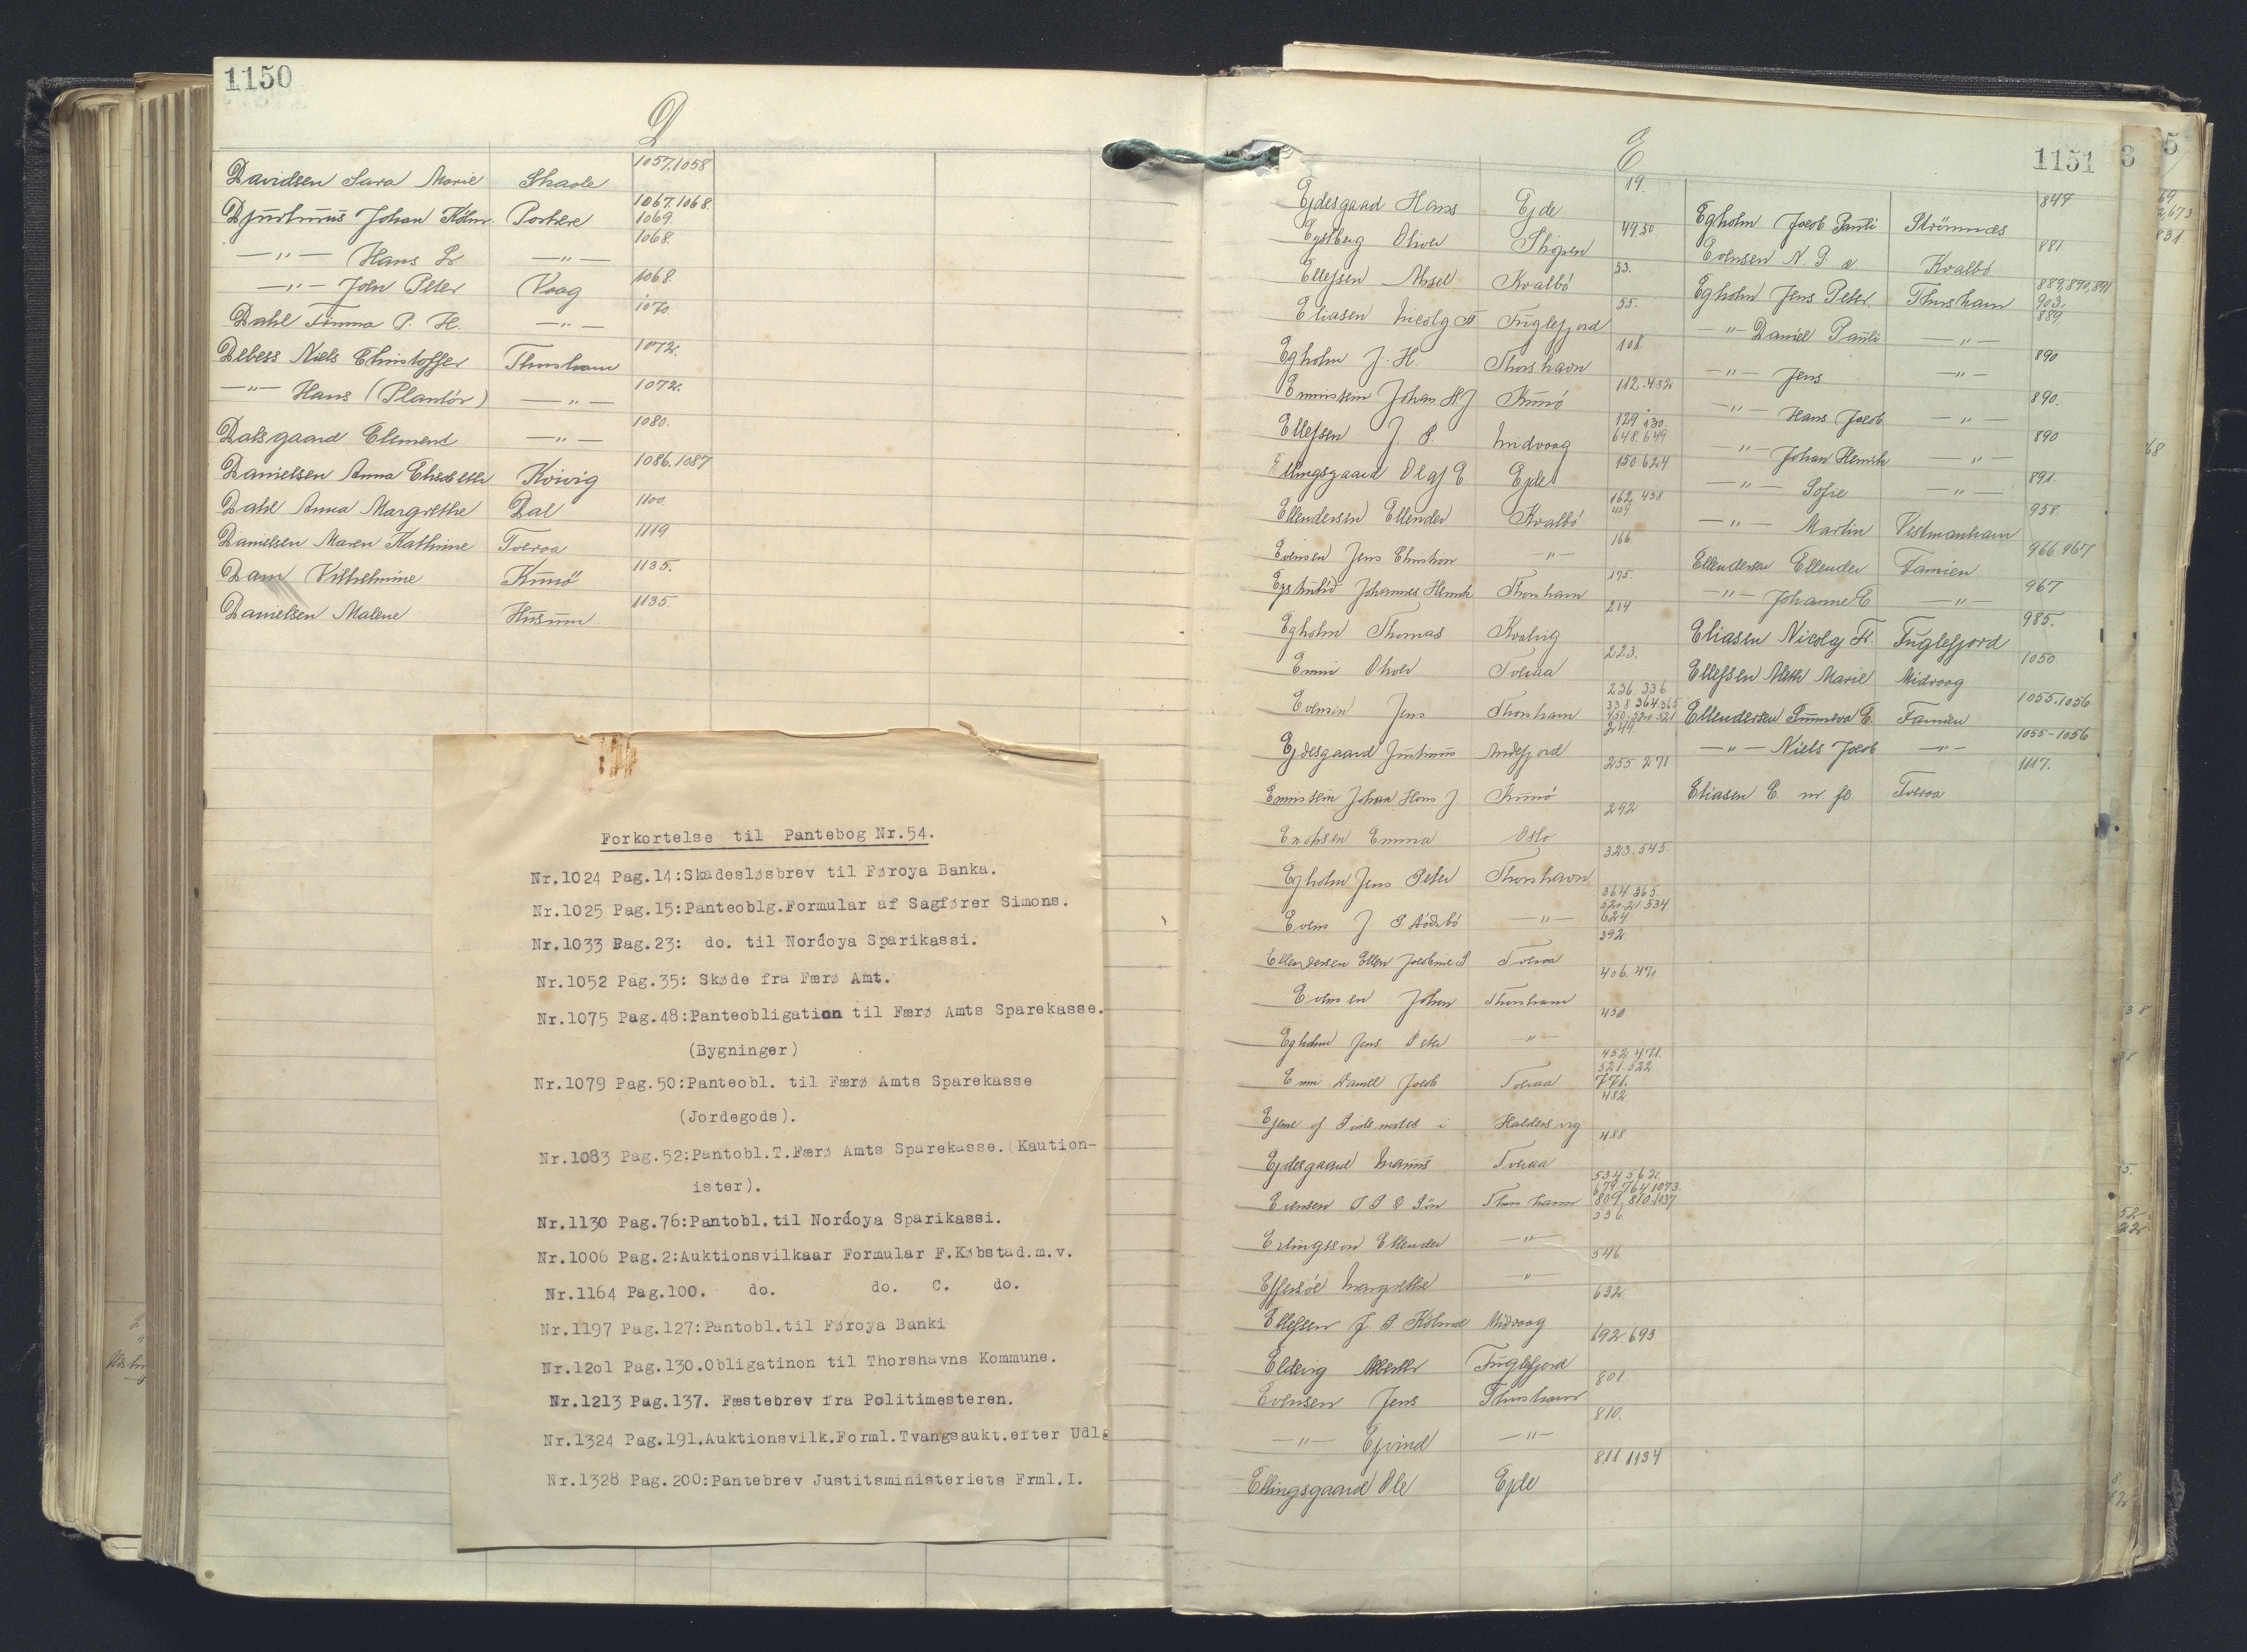 1150
D
Davidsen Sara Marie Skaale 1057.1058
Djurhuus Johan Kolm. Porkere 1067.1068. 1069.
—"— Hans —"— 1068.
—"— John Peter Vaag 1068.
Dahl P. H. —"— 1070
Debess Niels Christoffer Thorshavn 1072.
—"— Hans (Plantör) —"— 1072.
Dalsgaard Clement —"— 1080.
Danielsen Anna Elisabeth Kvivig 1086.1087
Dahl Anna Margrethe Dal 1100.
Danielsen Maren Kathrine Tveraa 1119
Dam Vilhelmine Kunö 1135.
Danielsen Malene Husum 1135.
Forkortelse til Pantebog Nr.54.
Nr.1024 Pag.14:Skadesløsbrev til Føroya Banka.
Nr.1025 Pag.15:Panteoblg.Formular af Sagfører Simons.
Nr.1033 Pag.23: do. til Nordoya Sparikassi.
Nr.1052 Pag.35: Skøde fra Færø Amt.
Nr.1075 Pag.48:Panteobligation til Færø Amts Sparekasse.
(Bygninger)
Nr.1079 Pag.50:Panteobl. til Færø Amts Sparekasse
(Jordegods).
Nr.1083 Pag.52:Pantobl.T.Færø Amts Sparekasse.(Kaution-
ister).
Nr.1130 Pag.76:Pantobl.til Nordoya Sparikassi.
Nr.1006 Pag.2:Auktionsvilkaar Formular F.Købstad.m.v.
Nr.1164 Pag.100. do. do. C. do.
Nr.1197 Pag.127:Pantobl.til Føroya Banki
Nr.12o1 Pag.130.Obligatinon til Thorshavns Kommune.
Nr.1213 Pag.137. Fæstebrev fra Politimesteren.
Nr.1324 Pag.191.Auktionsvilk.Forml.Tvangsaukt.efter Udlg
Nr.1328 Pag.200:Pantebrev Justitsministeriets Frml.I.
1151
E
Ejdesgaard Hans Ejde 19.
Oliver Skopen 49 50
Ellefsen Kvalbö 53.
Eliasen Nicolaj Fr Fuglefjord 55.
Egholm J. H. Thorshavn 108.
Johan H J Kunö 112.482
Ellefsen J. P. Midvaag 129.130. 648.649
Ellingsgaard Olaf E Ejde 150 624
Ellendersen Ellender Kvalbö 162 438 439
Evensen Jens Christian —"— 166
Johannes Henrik Thorshavn 175.
Egholm Thomas Kvalvig 214
Enni Oliver Tveraa 223.
Evensen Jens Thorshavn 236. 336 338 364 365 450. 520 521
Ejdesgaard Justinus Andefjord 249
Johan Hans J. Kunö 255 271
Emma Oslo 292
Egholm Jens Peter Thorshavn 323.545.
J. P. —"— 364 365. 520.21 534 624
Ellendersen Ellen Jacobine S Tveraa 392.
Evensen Johan Thorshavn 406.470
Egholm Jens Peter —"— 450
Enni Daniel Jacob Tveraa 452 471. 521.522 771.
Ejerne af i Haldersvig 482
Ejdesgaard Magnus Tveraa 488
Evensen Søn Thorshavn 534 562. 679.764 1073. 809, 810.1037
Erlingsson Ellender —"— 536
Effersöe Margrethe " 546
Ellefsen J. P. Kolm Midvaag 632
Eldevig Fuglefjord 692.693
Evensen Jens Thorshavn 801
—"— Ejvind —"— 810.
Ellingsgaard Ole Ejde 811.1134
Egholm Jacob Pauli Strömnæs 849
Evensen N. P. Kvalbö 881
Egholm Jens Peter Thorshavn 889,890,891 903.
—"— Daniel Pauli —"— 889
—"— Jens —"— 890
—"— Hans Jacob —"— 890.
—"— Johan Henrik —"— 890
—"— Sofie —"— 891.
—"— Martin Vestmanhavn 958.
Ellendersen Ellender Famien 966 967
—"— Johanne E —"— 967
Eliasen Nicolaj Fr. Fuglefjord 985.
Ellefsen Marie Midvaag 1050.
Ellendersen Sunneva E. Famien 1055.1056
—"— Niels Jacob —"— 1055-1056
Eliasen E. m. fl. Tveraa 1117.